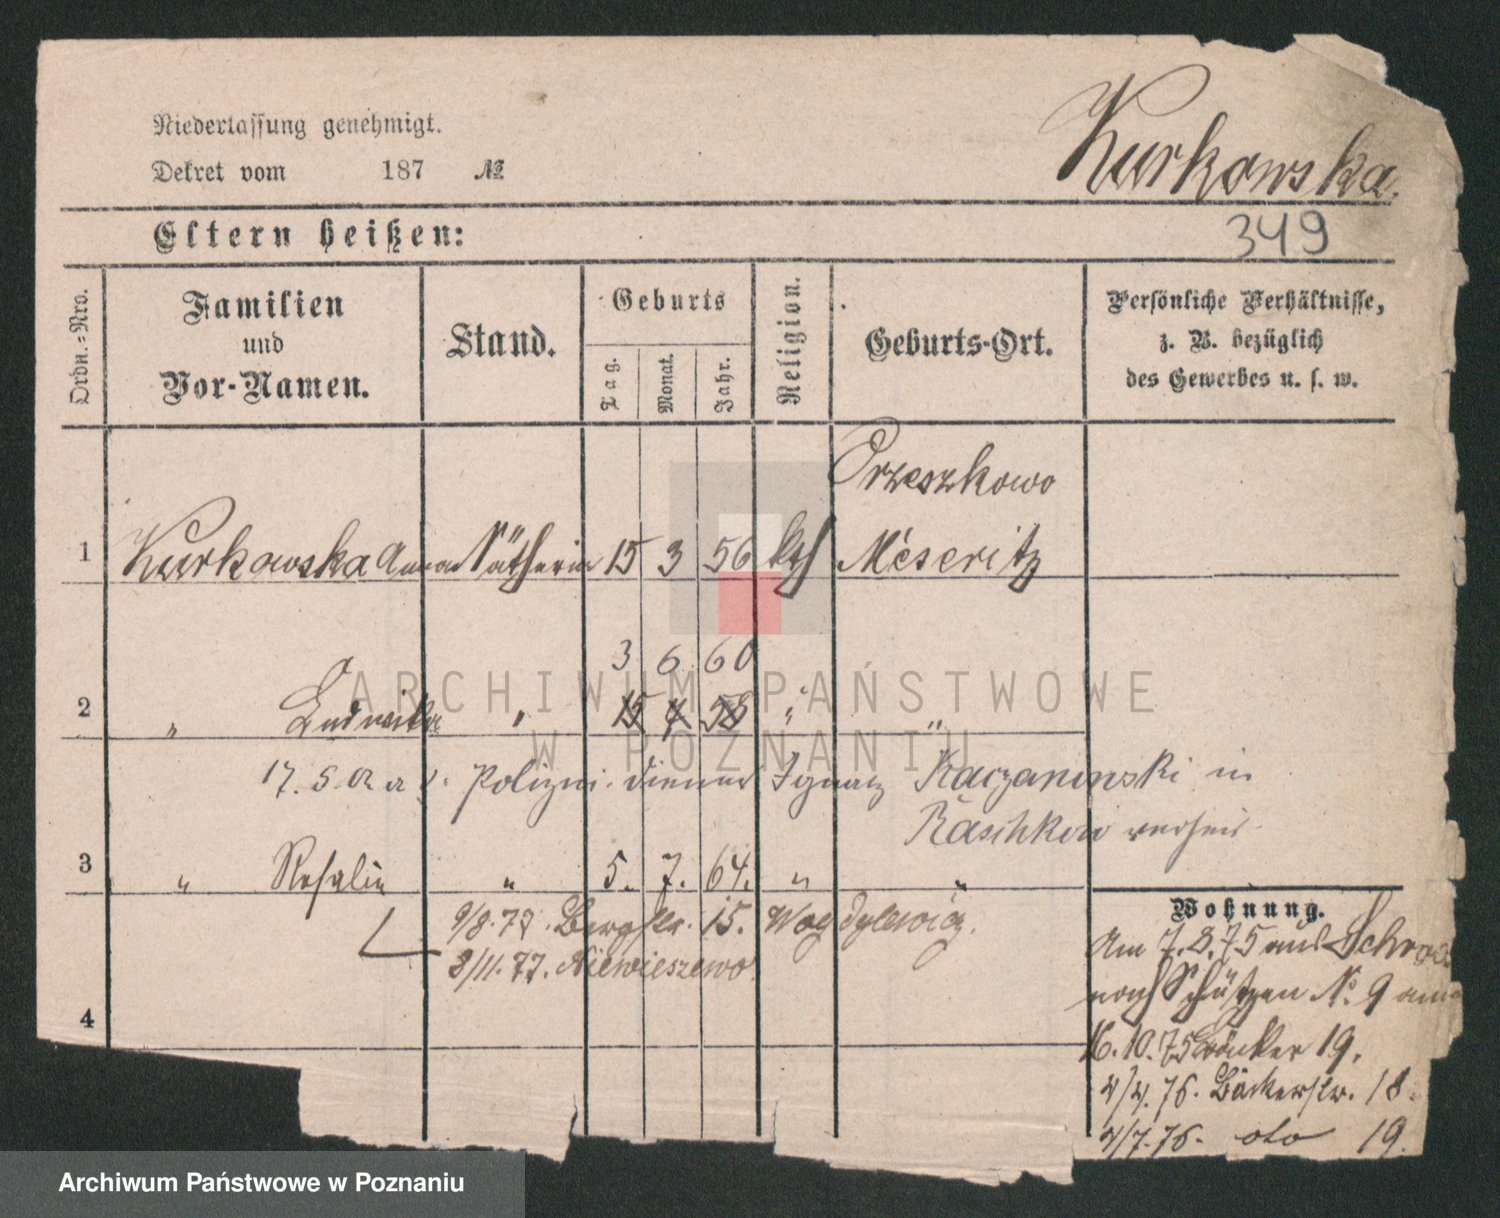 Niederlassung genehmigt.
Dekret vom 187 №
Kurkowska.
Eltern heißen:
349
Ordn.=Nro.
Familien und Vor-Namen.
Stand.
Geburts
Tag.
Monat.
Jahr.
Religion.
Geburts-Ort.
Persönliche Verhältnisse,
z. B. bezüglich
des Gewerbes u. s. w.
Orzeszkowo
1 Kurkowska Anna Nätherin 15 3 56 kth Meseritz
3 6 60
2 " Ludwika " 15 4 58 " "
17. 5. Polizei-diener Ignatz Kaczanowski in
Raschkow
3 " Rosalie " 5. 7. 64. " "
9/8. 77. Bergstr. 15. Wogdylewicz.
8/11. 77. Niewieszewo.
4
Wohnung.
Am 7. 8. 75 aus Schro
nach Schützen No. 9 am
16. 10. 75 Bäcker 19.
4/4. 76. Bäckerstr. 18.
4/7. 76. dto 19.
ARCHIWUM PAŃSTWOWE
W POZNANIU
Archiwum Państwowe w Poznaniu